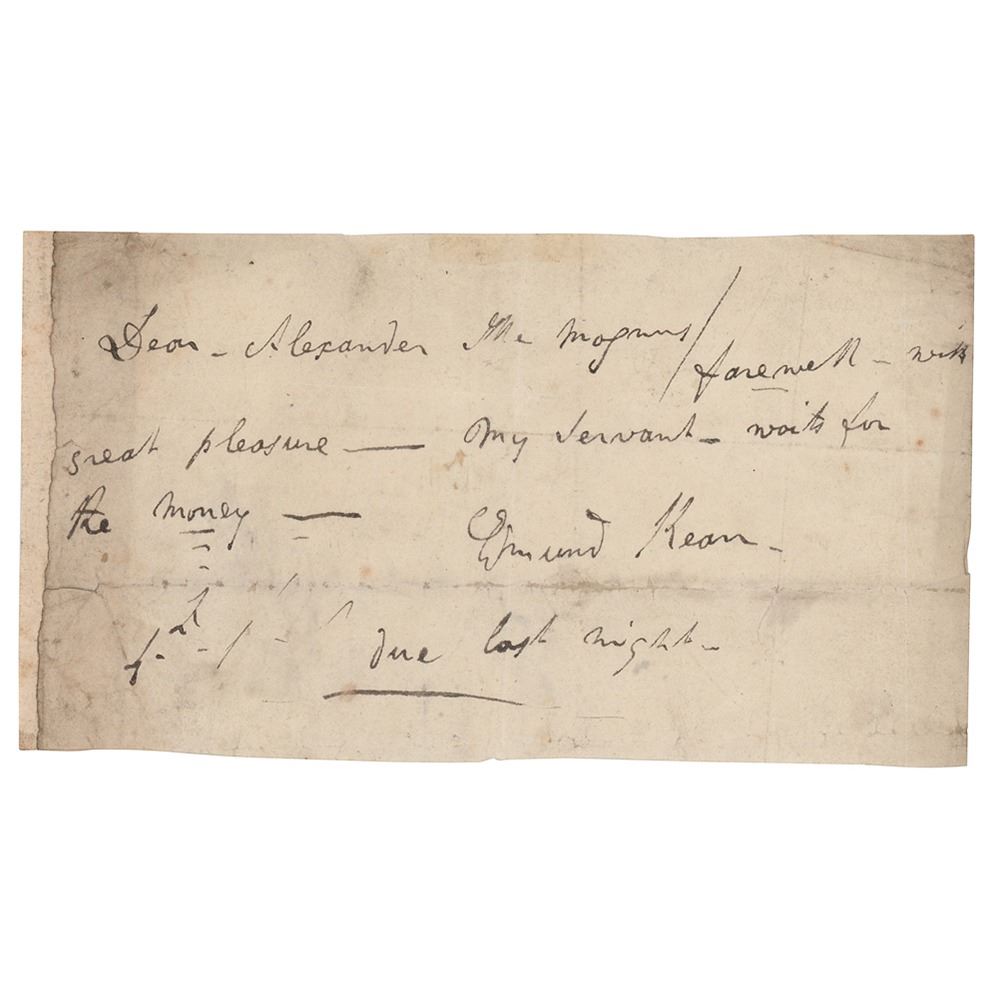 Dear - Alexander the Magnus / farewell - with
great pleasure — My Servant - waits for
the money —
Edmund Kean -
due last night -